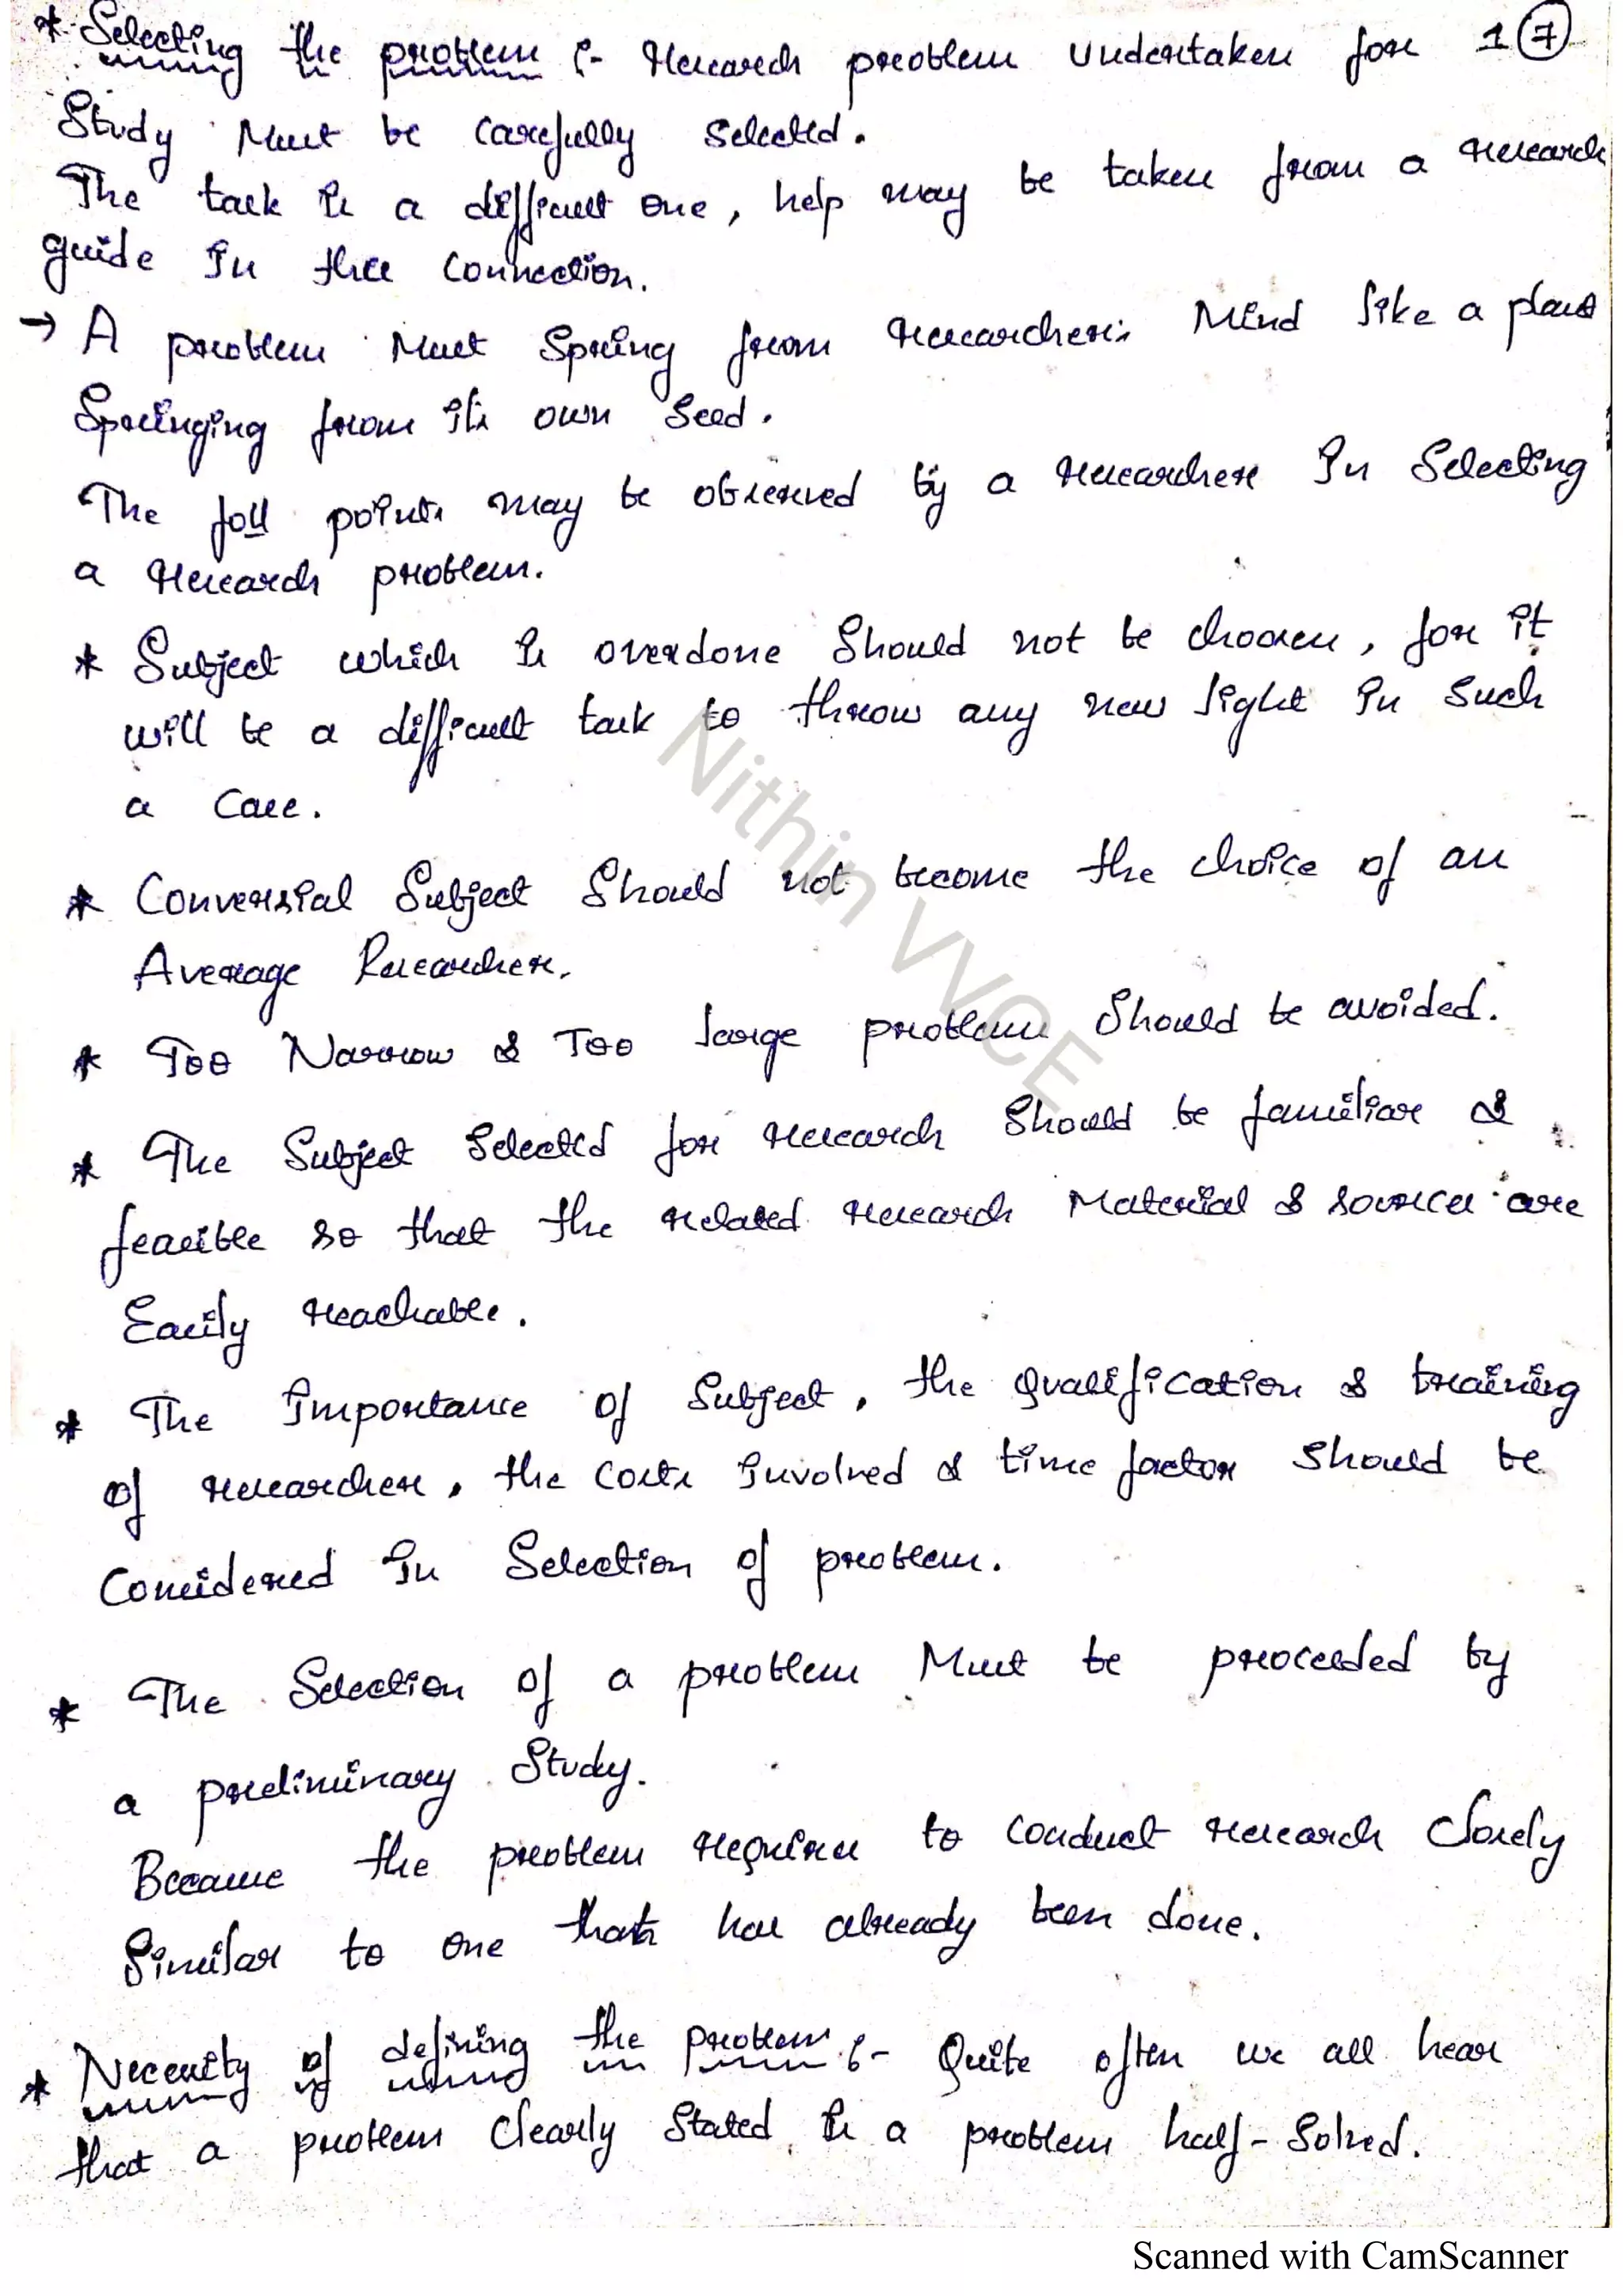 * Selecting the problem :- Research problem undertaken for 1 (7)
Study Must be carefully selected.
The task is a difficult one, help may be taken from a research
guide In this connection.
→ A problem Must Spring from researchers Mind like a plant
Springing from its own Seed.
The foll points may be observed by a researcher In Selecting
a research problem.
* Subject which is overdone Should not be choosen, for it
will be a difficult task to throw any new light In such
a Case.
* Conversial Subject Should not become the choice of an
Average Researcher.
* Too Narrow & Too large problem Should be avoided.
* The Subject Selected for research Should be familiar &
feasible so that the related research Material & sources are
Easily reachable.
* The Importance of Subject, the qualification & training
of researcher, the costs Involved & time factor Should be
Considered In Selection of problem.
* The Selection of a problem Must be proceeded by
a preliminary Study.
Because the problem requires to conduct research closely
Similar to one that has already been done.
* Necessity of defining the problem :- Quite often we all hear
that a problem clearly stated is a problem half-solved.
Nithin VVCE
Scanned with CamScanner